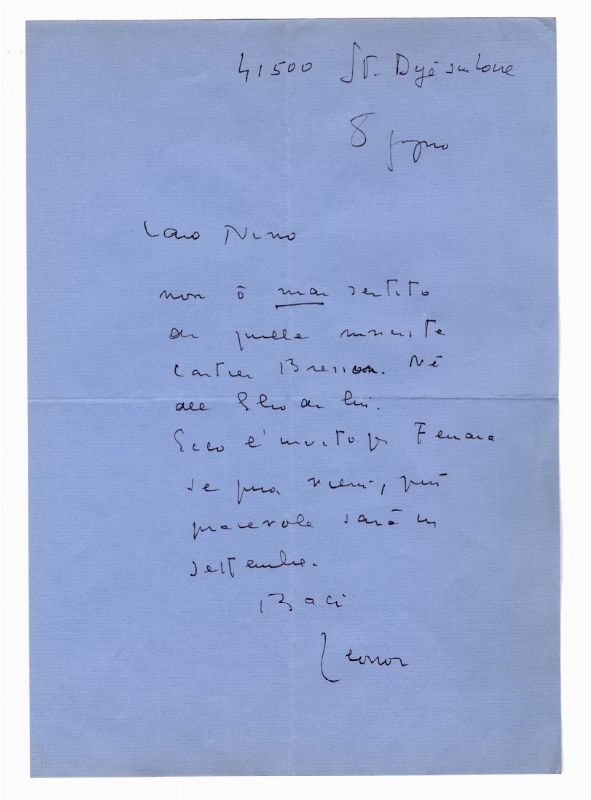 41500 St. Dyé sur Loire
8 giugno
Caro Nino
non ò mai sentito
di quelle
Cartier Bresson. Né
di lui.
Ecco l'invito pr Ferrara
se puoi vieni, più
piacevole sarà in
settembre.
Baci
Leonor